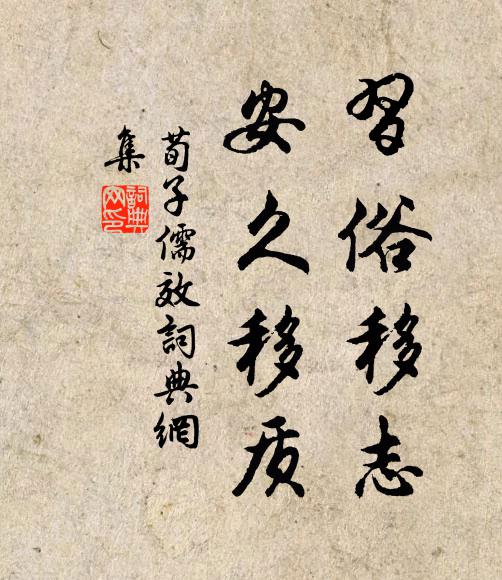 習俗移志
安久移质
荀子儒效詞典網
集
詞典
网印